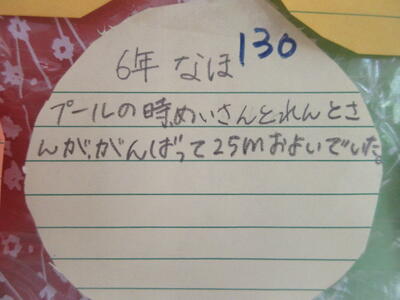 6年 なほ 130
プールの時、めいさんとれんとさ
んが、がんばって25mおよいでいた。